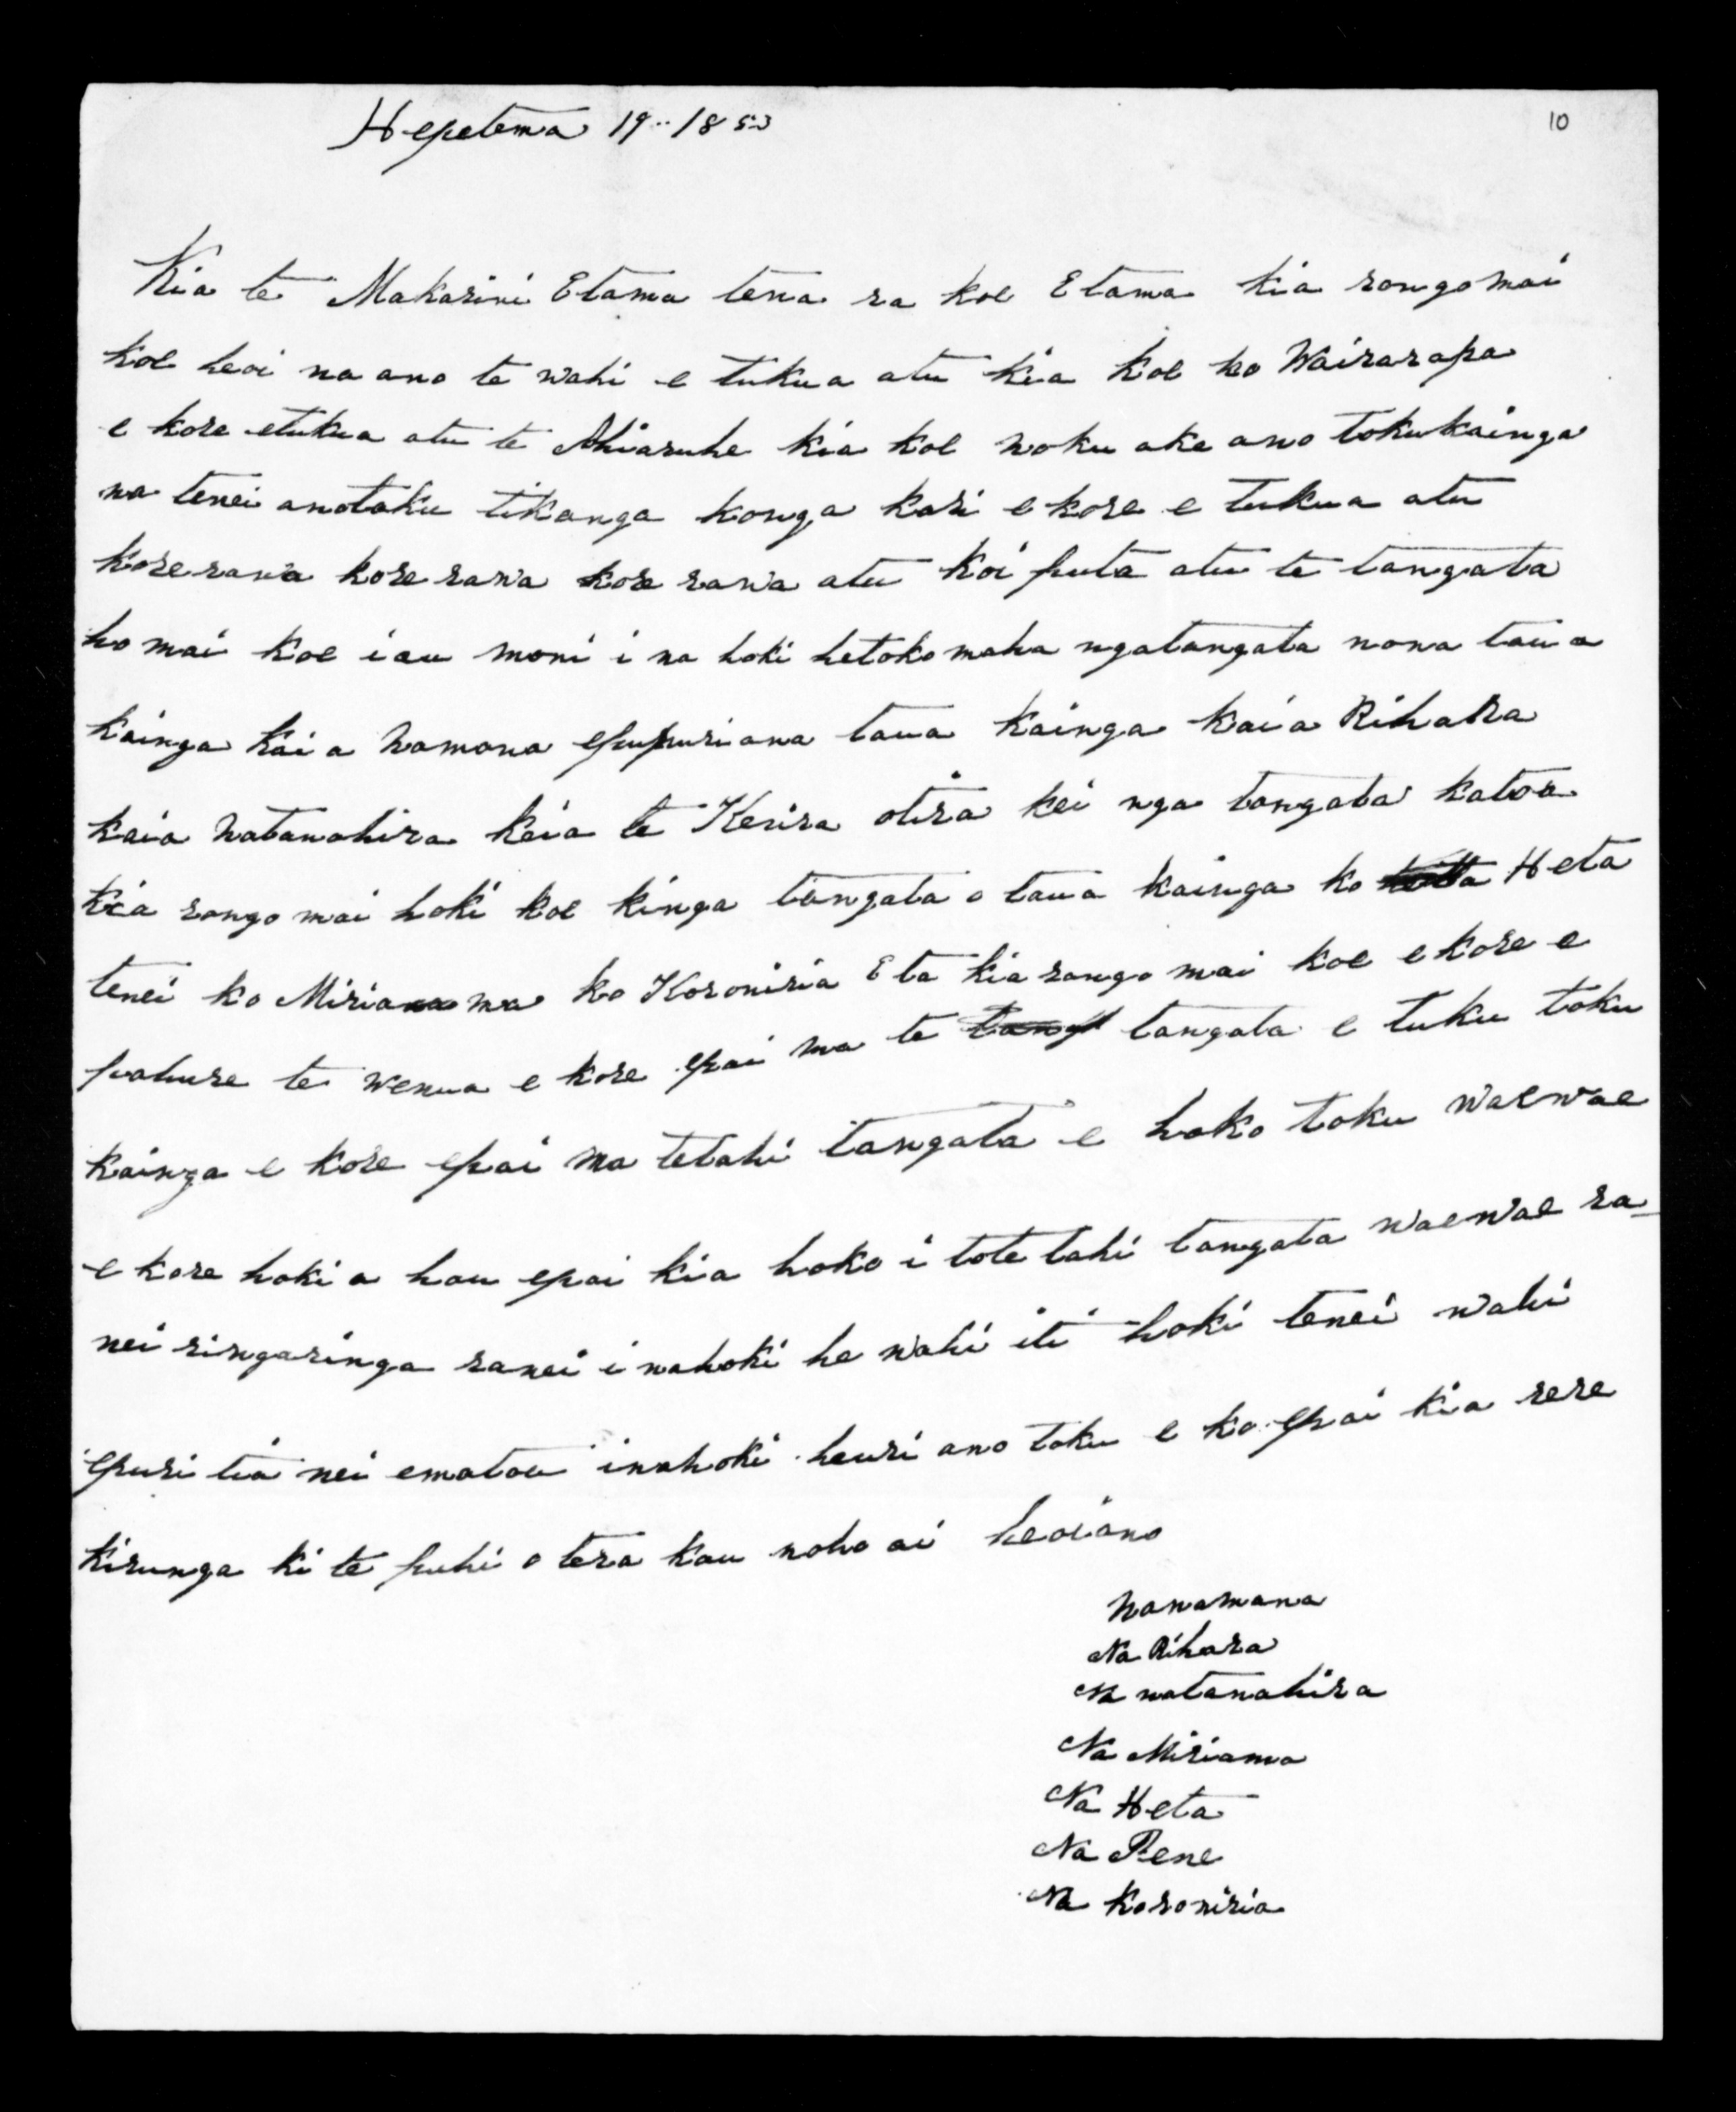 Hepetema 19.. 1853
10
Kia te Makarini Etama tena ra koe Etama kia rongo mai
koe heoi na ano te wahi e tukua atu kia koe ko Wairarapa
e kore etukua atu te Ahiaruhe kia koe noku ake ano tokukainga
na tenei anotaku tikanga konga kari e kore e tukua atu
korerawa kore rawa kore rawa atu koi puta atu te tangata
ho mai koe i au moni i na hoki hetokomaha ngatangata nona taua
kainga kai a hamona epupuriana taua kainga kai a Rihara
kaia natanahira keia te Kerira otira kei nga tangata katoa
kia rongo mai hoki koe kinga tangata o taua kainga ko Heta
tenei ko Miriama ko Koroniria Eta kia rongo mai koe ekore e
pahure te wenua e kore epai ma te tangata e tuku toku
kainga e kore epai ma tetahi tangata e hoko toku waewae
e kore hoki a hau epai kia hoko i tote tahi tangata waewae ra_
nei ringaringa ranei i nahoki he wahi iti hoki tenei wahi
epuri tia nei ematou inahoki heuri ano toku e ko epai kia rere
kirunga ki te puhi o tera kau noho ai heoiano
hanamana
Na Rihara
Na natanahira
Na Miriama
Na Heta
Na Pene
Na Koroniria